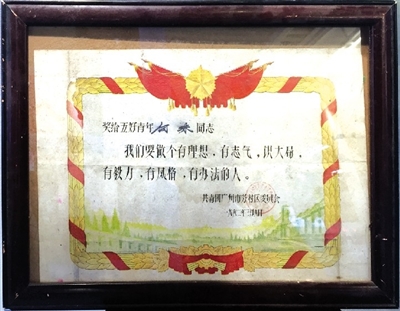 奖给五好青年 同志
我们要做个有理想、有志气、识大局、
有毅力、有风格、有办法的人。
共青团广州市 区委员会